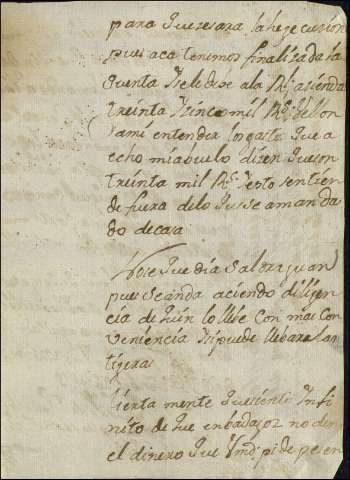 para que sesara la hegecusion
pues aca tenemos finalisada la
quenta i se le dese a la Rl asienda
treinta i sinco mil Rs. Vellon
i ami entender lo gasto que a
echo mi abuelo disen que son
treinta mil Rs. i esto se entien
de fuera de lo que se a manda
do de casa
No se que dia saldra juan
pues canda aciendo diligen
cia de quien lo lleve con mas con
veniencia i si puede llebara la
tigera
sierta mente que siento infi
nito de que en badajoz no den
el dinero que Vmd. pide pesen